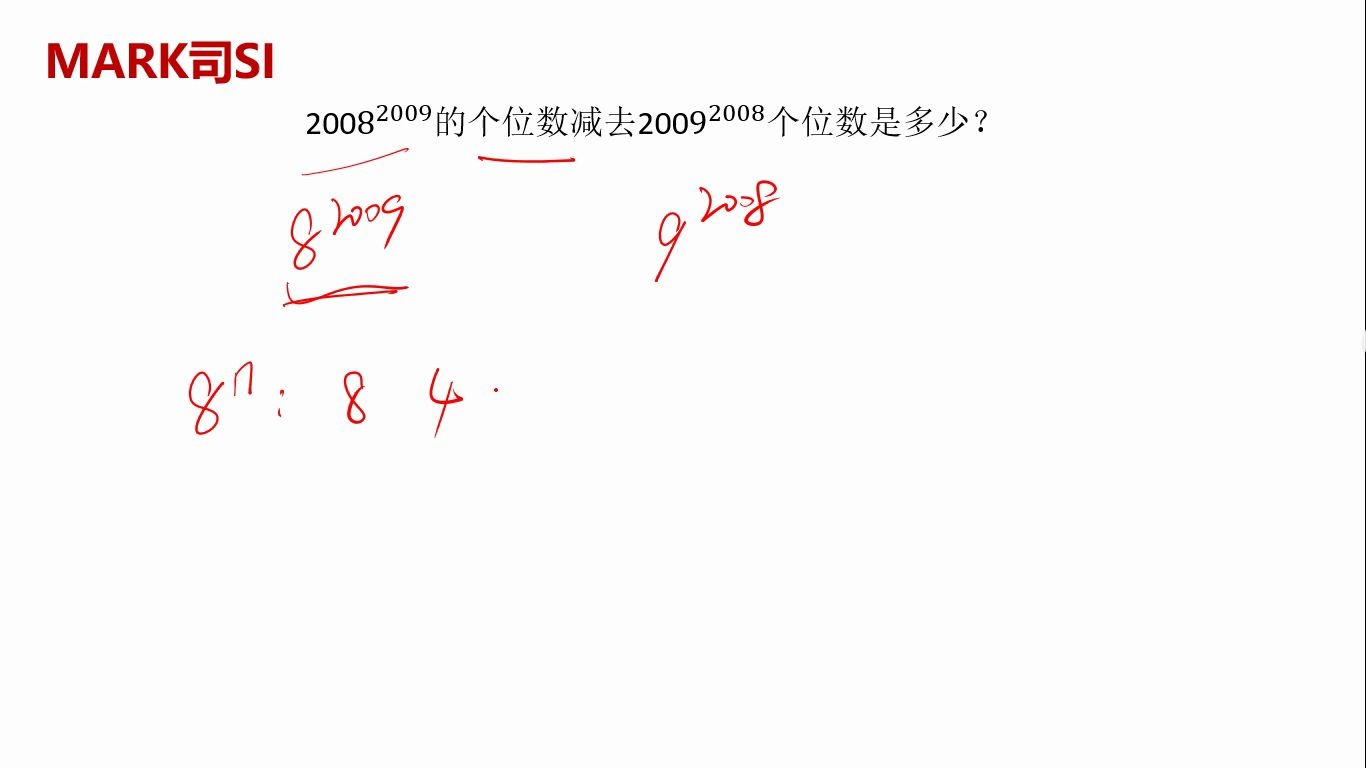 MARK司SI
2008²⁰⁰⁹的个位数减去2009²⁰⁰⁸个位数是多少？
8²⁰⁰⁹ 9²⁰⁰⁸
8ⁿ: 8 4